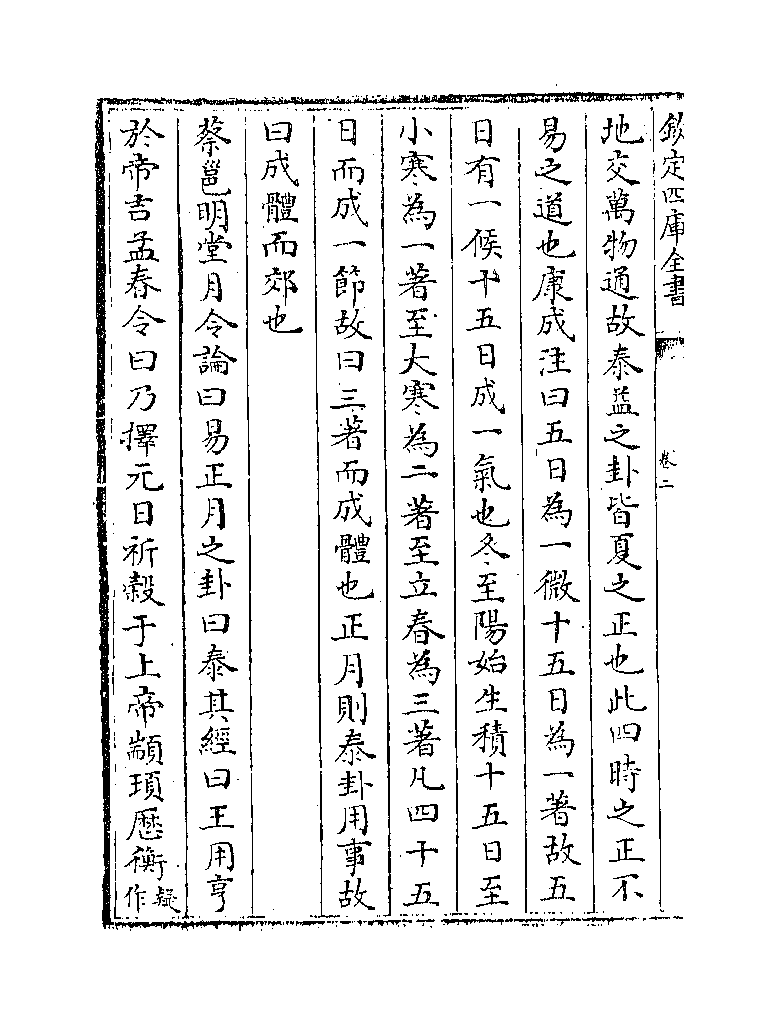 欽定四庫全書
卷二
地交萬物通故泰益之卦皆夏之正也此四時之正不
易之道也康成注曰五日為一微十五日為一著故五
日有一候十五日成一氣也冬至陽始生積十五日至
小寒為一著至大寒為二著至立春為三著凡四十五
日而成一節故曰三著而成體也正月則泰卦用事故
曰成體而郊也
蔡邕明堂月令論曰易正月之卦曰泰其經曰王用亨
於帝吉孟春令曰乃擇元日祈穀于上帝顓頊厯衡疑作